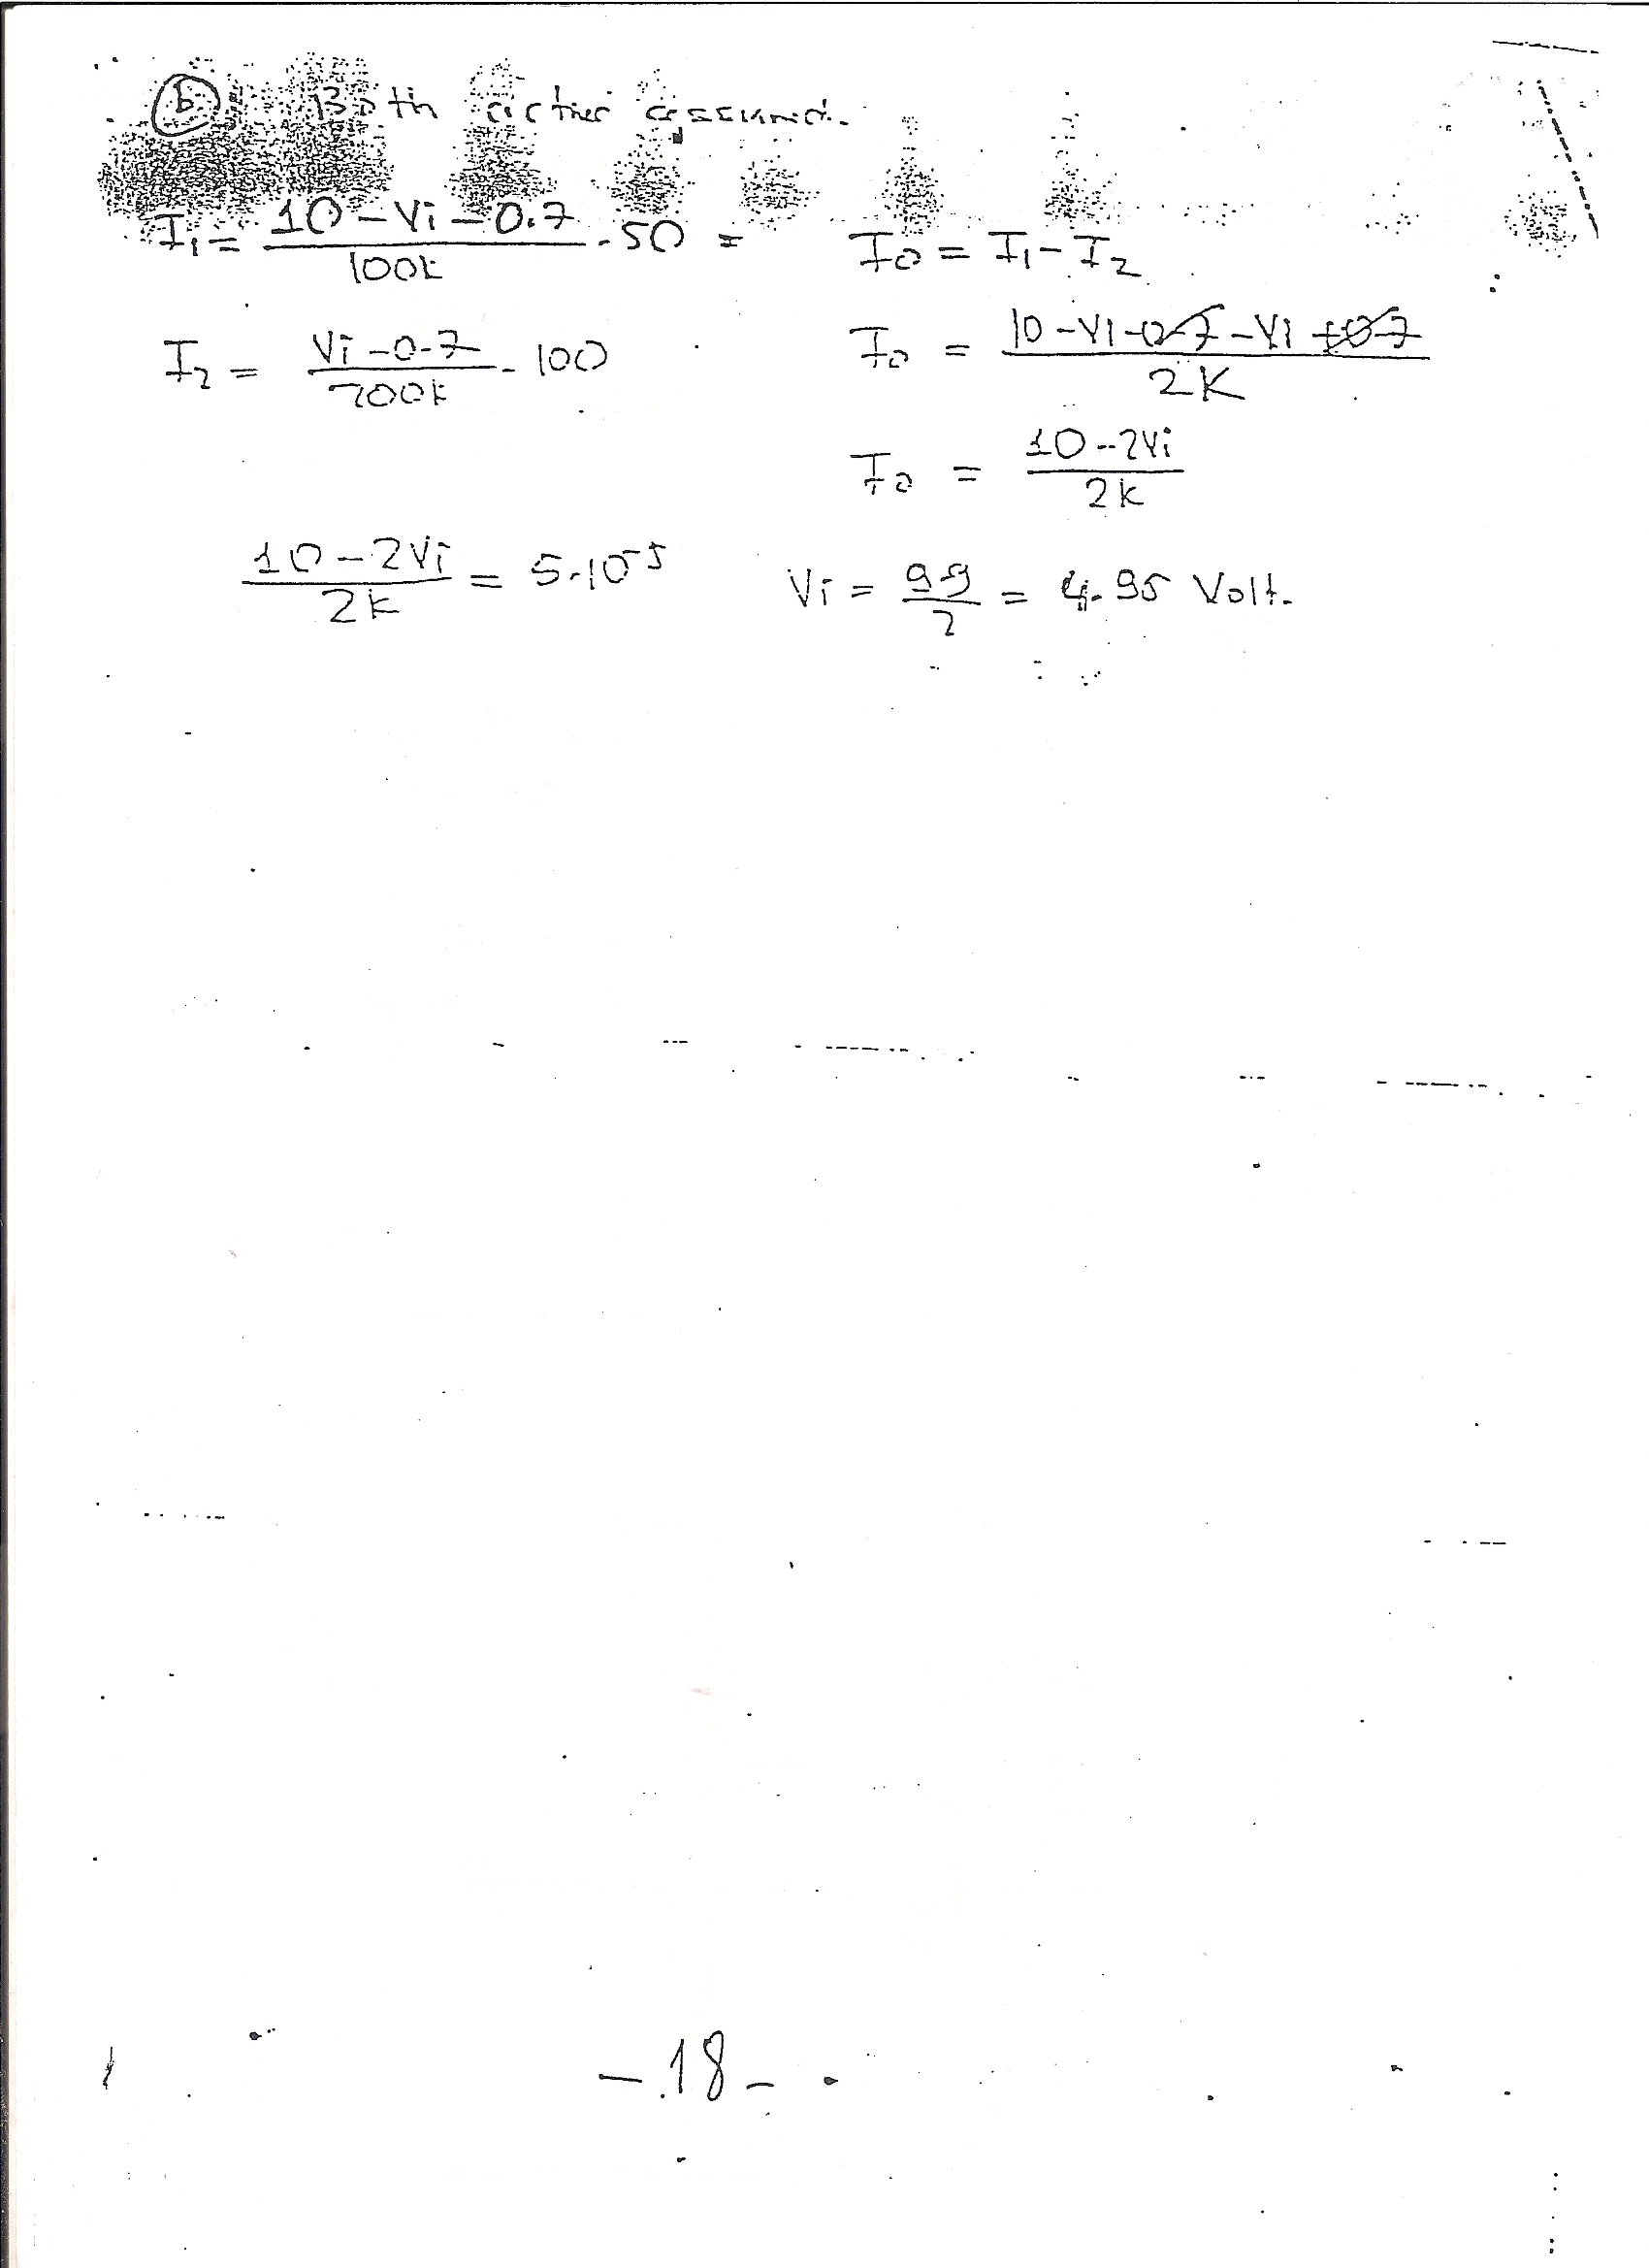 (b) Both active assumed.
I₁ = (10 - Vi - 0.7)/100k . 50 =
I₂ = (Vi - 0.7)/200k . 100
I0 = I₁ - I₂
I0 = (10 - Vi - 0.7 - Vi + 0.7)/2K
I0 = (10 - 2Vi)/2k
(10 - 2Vi)/2k = 5.10⁻⁵
Vi = 9.9/2 = 4.95 Volt.
- 18 -